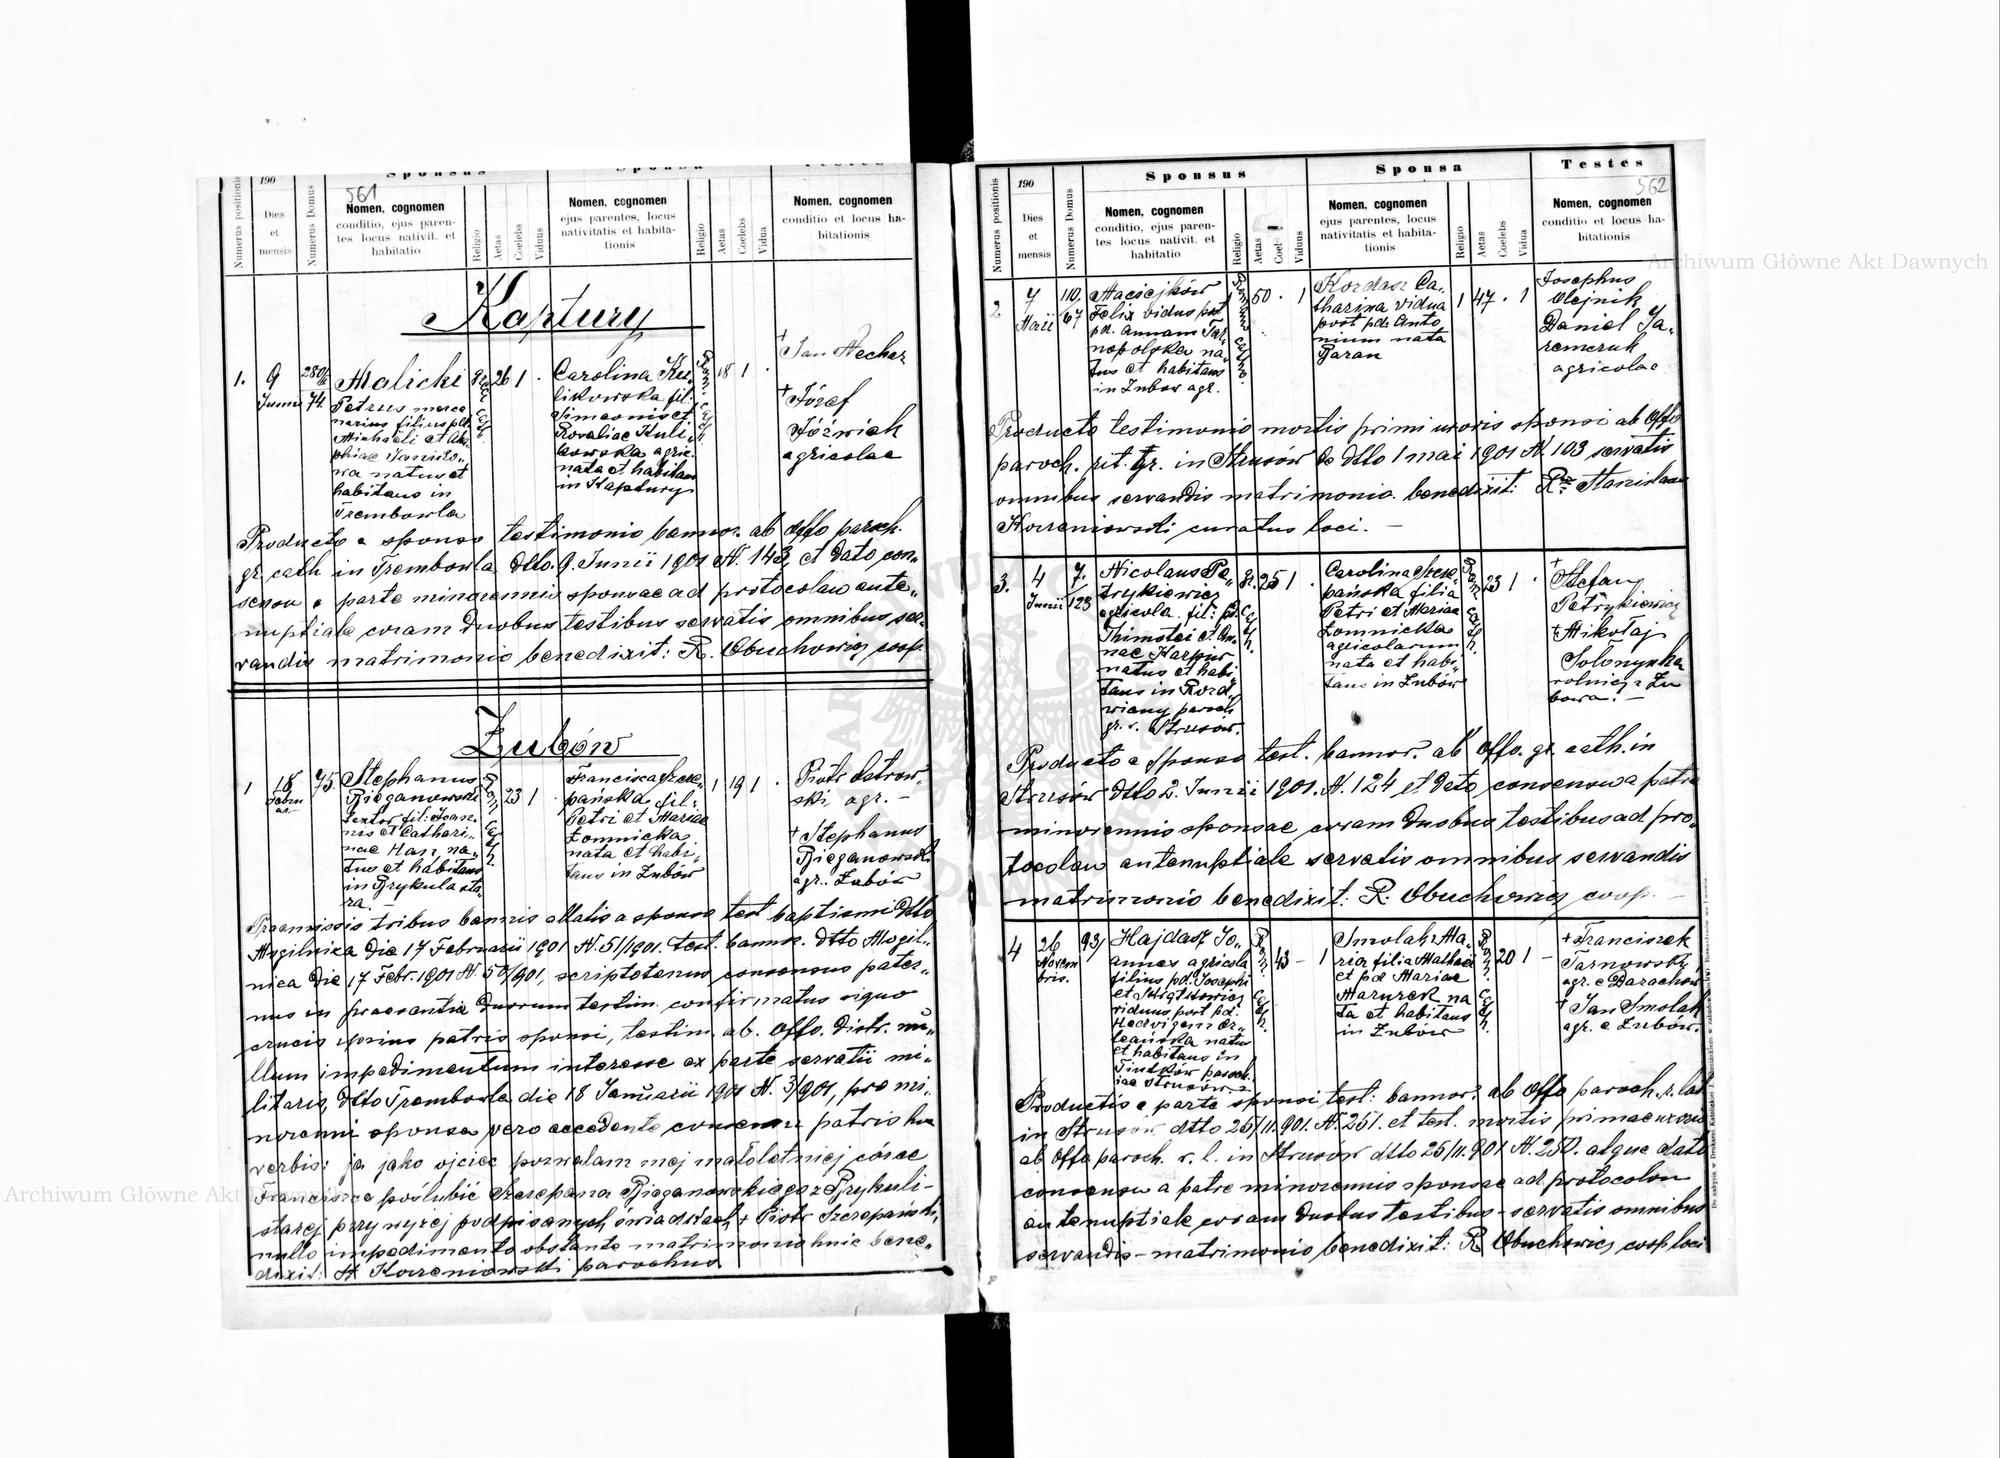 190
Sponsus
Sponsa
Testes
561
Numerus positionis
Dies et mensis
Numerus Domus
Nomen, cognomen
conditio, ejus paren-
tes locus nativit. et
habitatio
Religio
Aetas
Coelebs
Viduus
Nomen, cognomen
ejus parentes, locus
nativitatis et habita-
tionis
Religio
Aetas
Coelebs
Vidua
Nomen, cognomen
conditio et locus ha-
bitationis
Kaptury
1. 9 Junii 74.
Malicki
Petrus merce
narius filius pd.
Michaeli et
natus et
habitans in
Trembowla
26 1 .
Carolina Ku-
likowska fil.
Simeonis et
Rosaliae Kuli-
kowska agric.
nata et habitans
in Kaptury
18 1 .
+ Jan Necher
+ Józef
Jóźwiak
agricolae
Producto a sponso testimonio bannor. ab offo paroch.
gr. cath in Trembowla, dtto. 9. Junii 1901 N. 143, et dato con-
sensu a parte minorennis sponsae ad protocolau ante-
nuptiale coram duobus testibus servatis omnibus ser-
vandis matrimonio benedixit: R. Obuchowicz coop.
Zubów
1 18 75.
Stephanus
Bieganowski
fil: Joan-
nis et Cathari-
nae Han, na-
tus et habitans
in Brykula sta-
ra.
23 1
Francisca Szcze-
pańska fil:
Petri et Mariae
Łomnicka
nata et habi-
tans in Zubów
1 19 1 .
Piotr Ostrow-
ski agr. –
+ Stephanus
Bieganowski
agr. Zubów
Praemissis tribus bannis allatis a sponso test baptismi dtto
Mogilnica die 17 Februarii 1901 N. 51/1901. test. bannor. dtto Mogil-
nica die 17 Febr. 1901 N. 50/901, scriptotenus consensus pater-
nus in praesentia duorum testim. confirmatus signo
crucis ipsius patris sponsi, testim. ab. Offo. distr. nu-
llum impedimentum interesse ex parte servatii mi-
litaris, dtto Trembowla die 18 Januarii 1901 N. 3/901, pro mi-
norenni sponsa vero accedente consensu patris his
verbis: ja jako ojciec pozwalam mej małoletniej córce
Franciszce poślubić Szczepana Bieganowskiego z Brykuli-
starej przy wyżej podpisanych świadkach + Piotr Szczepański,
nullo impedimento obstante matrimonio huic bene-
dixit: St Korzeniowski parochus
190
Sponsus
Sponsa
Testes
562
Numerus positionis
Dies et mensis
Numerus Domus
Nomen, cognomen
conditio, ejus paren-
tes locus nativit. et
habitatio
Religio
Aetas
Viduus
Nomen, cognomen
ejus parentes, locus
nativitatis et habita-
tionis
Religio
Aetas
Coelebs
Vidua
Nomen, cognomen
conditio et locus ha-
bitationis
2 7 Maii 110. 67
Maciejków
Felix vidus post
pd. Annam Tar-
nopolska na-
tus et habitans
in Zubow agr.
50 . 1
Kordasz Ca-
tharina vidua
post pd. Anto
nium nata
Baran
1 47 . 1
Josephus
Olejnik
Daniel Ja-
remczuk
agricolae
Producto testimonio mortis primi uxoris sponsi ab Offo
paroch. rit. gr. in Strusów de dtto 1 mai 1901 N. 103 servatis
omnibus servandis matrimonio. benedixit: Stanislaus
Korzeniowski curatus loci. –
3. 4 Junii 7. 123
Nicolaus Pe-
trykiewicz
agricola. fil: pd.
Thimotei et An-
nae Karpiw
natus et habi-
tans in
paroch
gr. r. Strusów.
25 1 .
Carolina Szcze-
pańska filia
Petri et Mariae
Łomnicka
agricolarum
nata et habi-
tans in Zubów
23 1 .
+ Stefan
Petrykiewicz
+ Mikołaj
Sołonynka
rolnicy z Zu
bowa. –
Producto a sponso test. bannor. ab Offo. gr. cath. in
Strusów dtto 2. Junii 1901. N. 124 et dato consensu a patre
minorennis sponsae coram duobus testibus ad pro-
tocolau antenuptiale servatis omnibus servandis
matrimonio benedixit: R. Obuchowicz coop. –
4 26 Novem bris. 93/
Hajdasz Jo-
annes agricola
filius pd. Josephi
et
viduus post pd.
Hedvigem
natus
et habitans in
paroch.
Strusów
43 – 1
Smolak Ma-
ria filia Mathaei
et pd Mariae
Mazurek na
ta et habitans
in Zubów
20 1 –
+ Franciszek
Tarnowski,
agr. e Darachów
+ Jan Smolak
agr. e Zubów.
Productis e parte sponsi test: bannor. ab Offo paroch. r. lat
in Strusów dtto 25/11.901. N. 251. et test. mortis primae uxoris
ab Offo paroch. r. l. in Strusów dtto 25/11.901 N. 250. atque dato
consensu a patre minorennis sponsae ad protocolon
antenuptiale coram duobus testibus – servatis omnibus
servandis – matrimonio benedixit: R Obuchowicz coop loci
Archiwum Główne Akt Dawnych
Archiwum Główne Akt Dawnych